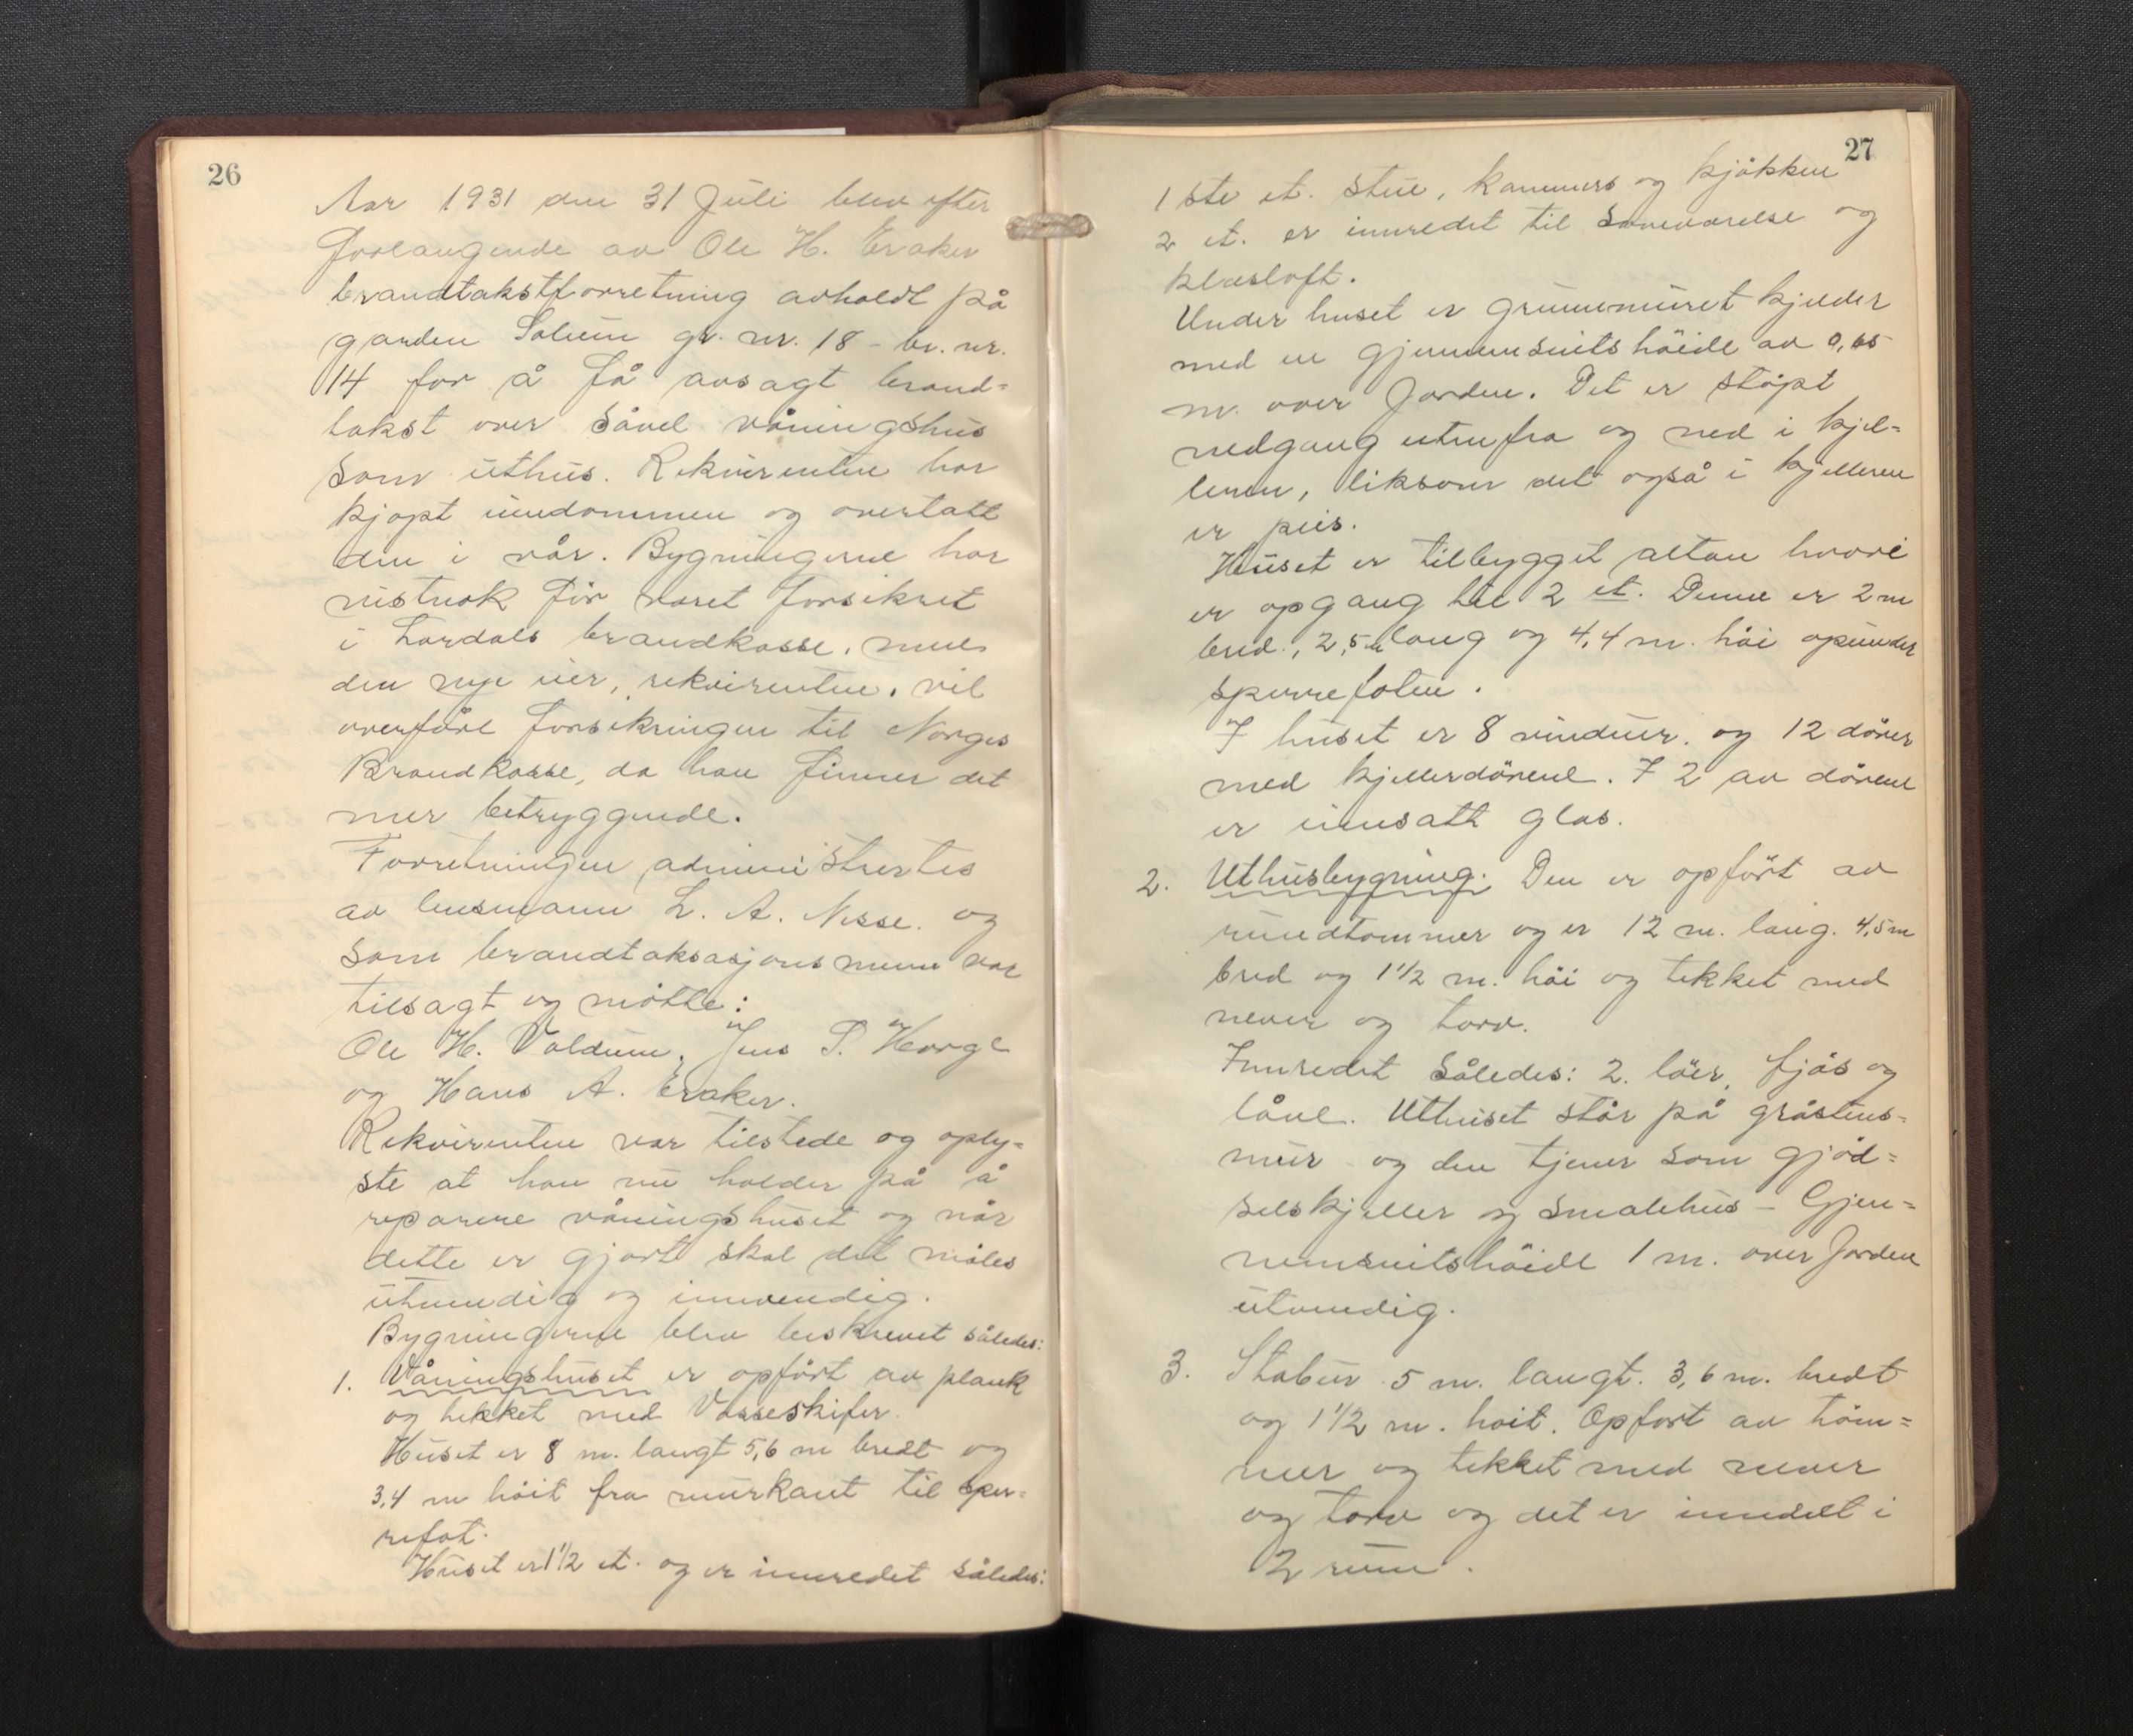 26
Aar 1931 den 31 Juli blev efter
forlangende av Ole H. Eraker
brandtakstforretning avholdt på
garden Solum gr. nr. 18 - br. nr.
14 for å få avsagt brand-
takst over såvel våningshus
som uthus. Rekvirenten har
kjøpt eiendommen og overtatt
den i vår. Bygningene har
vistnok før været forsikret
i Lærdals brandkasse, men
den nye eier, rekvirenten, vil
overføre forsikringen til Norges
Brandkasse, da han finner det
mer betryggende.
Forretningen administrertes
av lensmann L. A. Nesse og
som brandtaksasjonsmenn var
tilsagt og møtte:
Ole H. Voldum, Jens P. Hauge
og Hans A. Eraker.
Rekvirenten var tilstede og oply-
ste at han nu holder på å
reparere våningshuset og når
dette er gjort skal det måles
utvendig og innvendig.
Bygningene blev beskrevet således:
1. Våningshuset er opført av plank
og tekket med Vosseskifer.
Huset er 8 m. langt 5,6 m bredt og
3,4 m høit fra murkant til sper-
refot.
Huset er 1 1/2 et. og er innredet således:
27
1ste et. stue, kammers og kjøkken
2 et. er innredet til soveværelse og
klæsloft.
Under huset er grunnmuret kjelder
med en gjennemsnitshøide av 0,65
m. over Jorden. Det er støpt
nedgang utenfra og ned i kjel-
leren, liksom det også i kjelleren
er peis.
Huset er tilbygget altan hvori
er opgang til 2 et. Denne er 2 m
bred, 2,5 m lang og 4,4 m. høi opunder
sperrefoten.
I huset er 8 vinduer og 12 dører
med kjellerdørene. I 2 av dørene
er innsatt glas.
2. Uthusbygning. Den er opført av
rundtømmer og er 12 m. lang. 4,5 m
bred og 1 1/2 m. høi og tekket med
never og torv.
Innredet således: 2. løer, fjøs og
låve. Uthuset står på gråstens-
mur og den tjener som gjød-
selskjeller og smalehus - Gjen-
nemsnitshøide 1 m. over Jorden
utvendig.
3. Stabur 5 m. langt. 3,6 m. bredt
og 1 1/2 m. høit. Opført av tøm-
mer og tekket med never
og torv og det er inndelt i
2 rum.